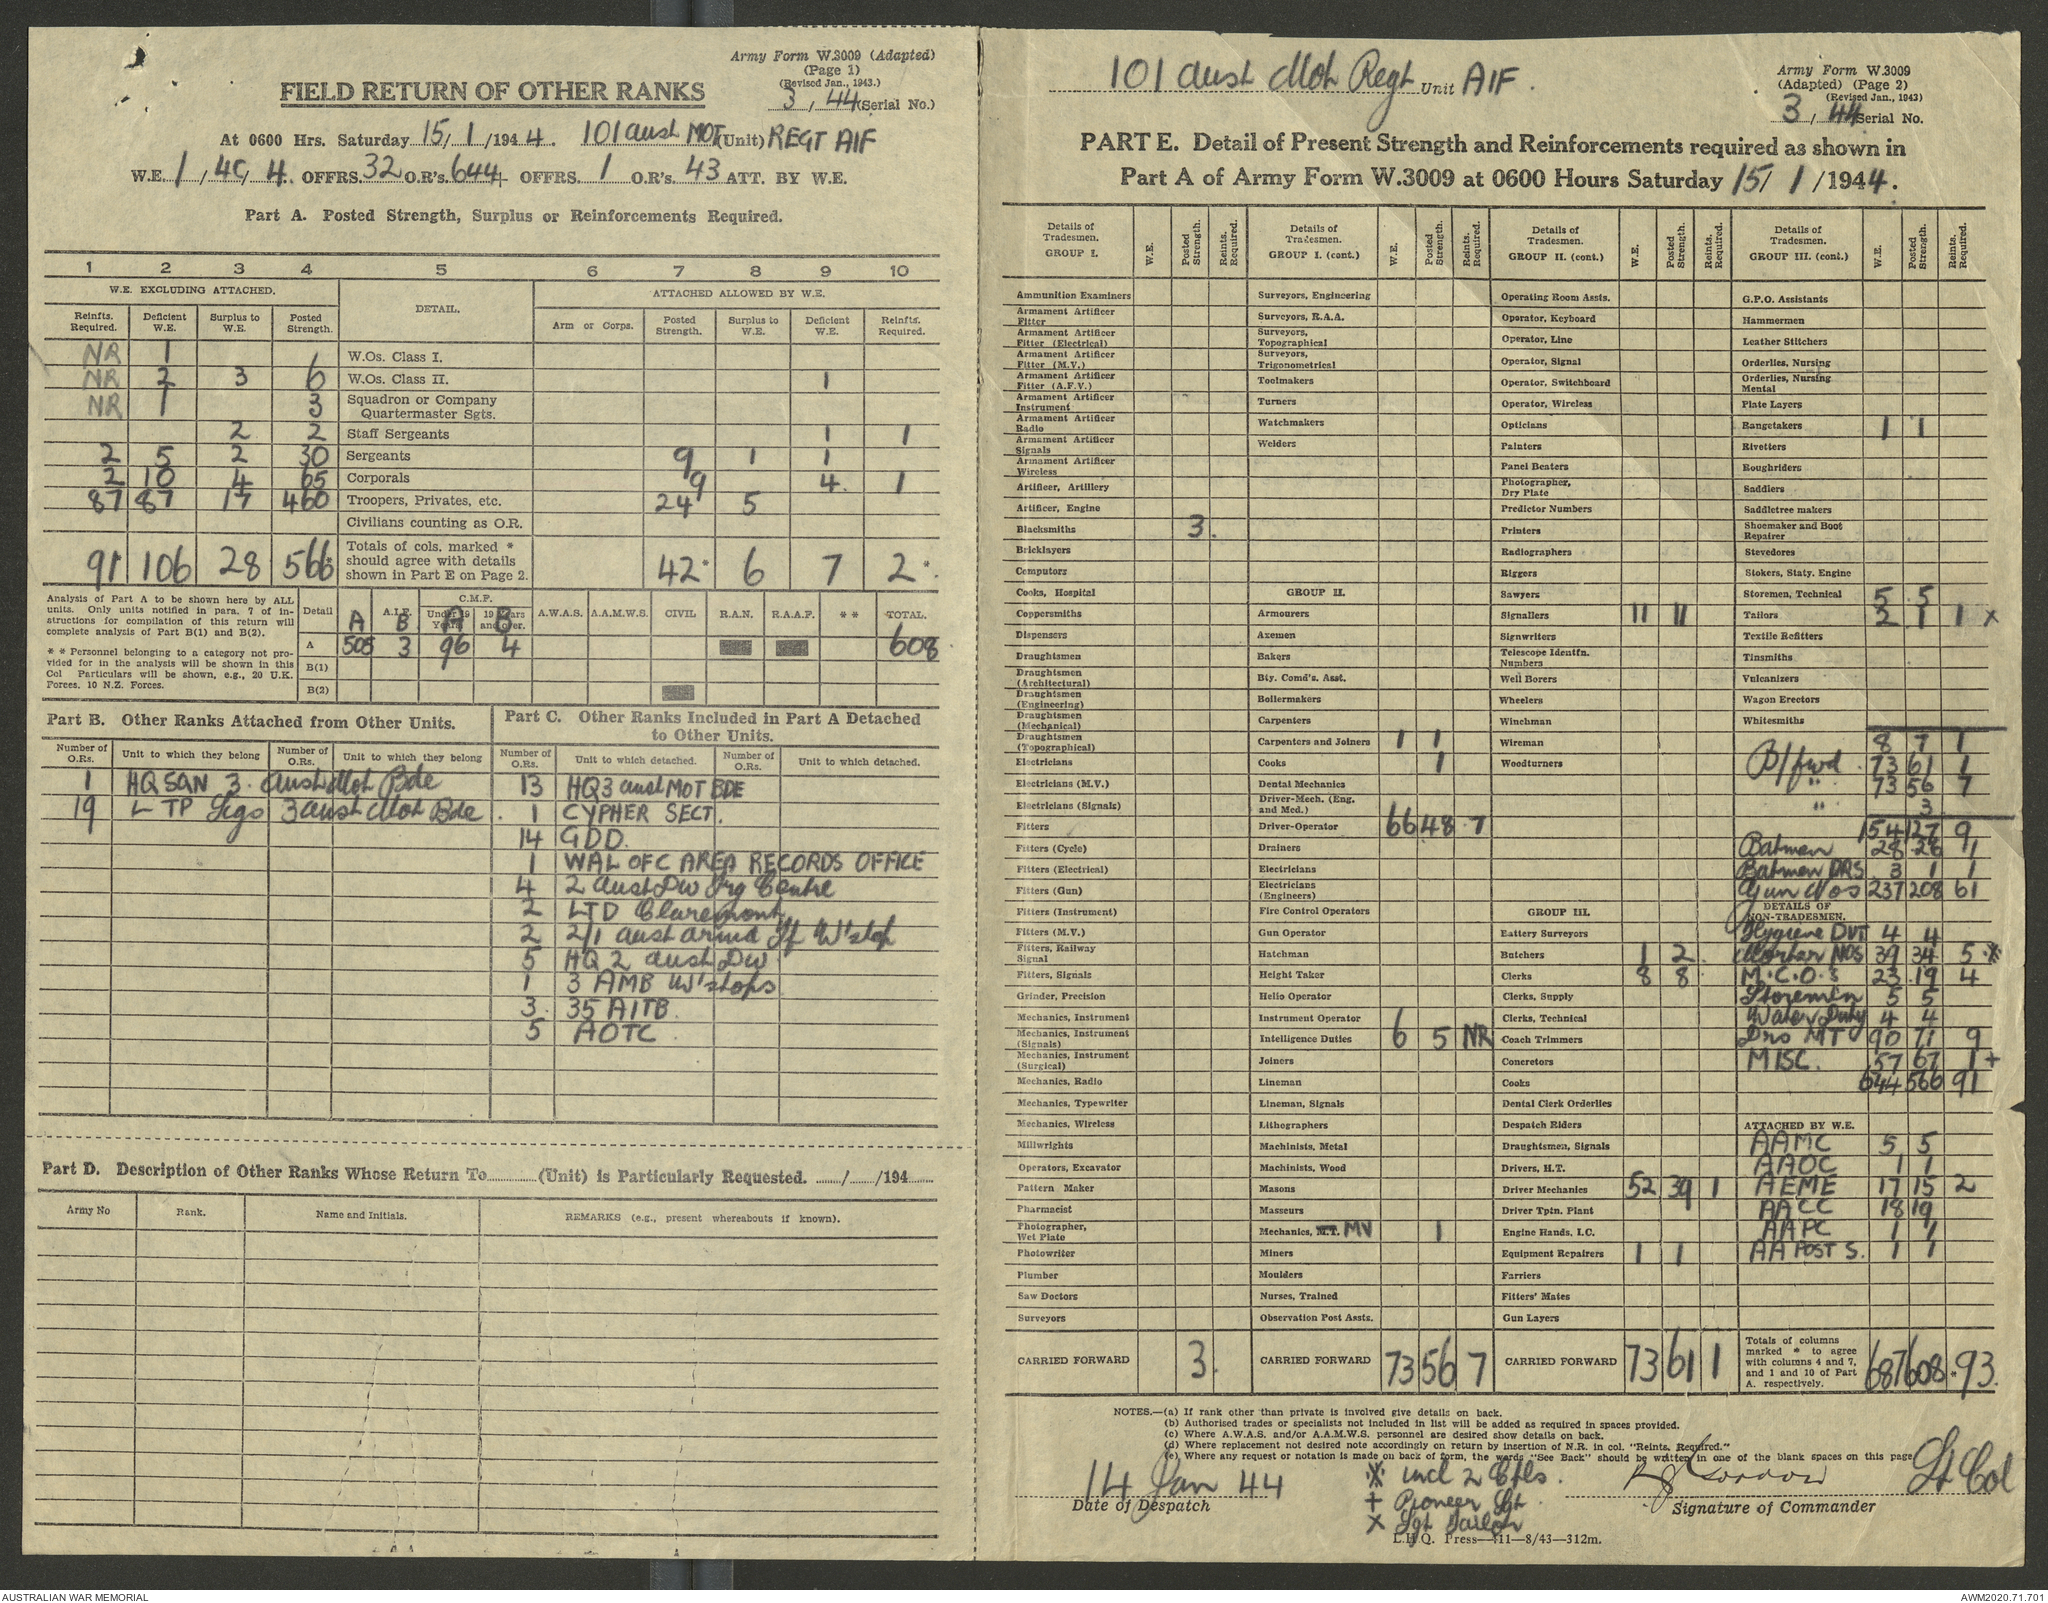 Army Form W.3009 (Adapted)
(Page 1)
(Revised Jan., 1943.)
FIELD RETURN OF OTHER RANKS
3 / 44 (Serial No.)
At 0600 Hrs. Saturday 15/ 1 /1944. 101 aust MOT (Unit) REGT AIF
W.E. 1 / 4C/ 4. OFFRS. 32 O.R's. 644 + OFFRS. 1 O.R's. 43 ATT. BY W.E.
Part A. Posted Strength, Surplus or Reinforcements Required.
1 2 3 4 5 6 7 8 9 10
W.E. EXCLUDING ATTACHED. DETAIL. ATTACHED ALLOWED BY W.E.
Reinfts. Required. Deficient W.E. Surplus to W.E. Posted Strength. Arm or Corps. Posted Strength. Surplus to W.E. Deficient W.E. Reinfts. Required.
NR 1 6 W.Os. Class I.
NR 2 3 6 W.Os. Class II. 1
NR 1 3 Squadron or Company Quartermaster Sgts.
2 2 Staff Sergeants 1 1
2 5 2 30 Sergeants 9 1 1
2 10 4 65 Corporals 9 4. 1
87 87 17 460 Troopers, Privates, etc. 24 5
Civilians counting as O.R.
91 106 28 566* Totals of cols. marked * should agree with details shown in Part E on Page 2. 42* 6 7 2*
Analysis of Part A to be shown here by ALL units. Only units notified in para. 7 of instructions for compilation of this return will complete analysis of Part B(1) and B(2).
* * Personnel belonging to a category not provided for in the analysis will be shown in this Col Particulars will be shown, e.g., 20 U.K. Forces. 10 N.Z. Forces.
Detail A.I.F. C.M.F. A.W.A.S. A.A.M.W.S. CIVIL R.A.N. R.A.A.F. * * TOTAL.
A B Under 19 Years A 19 Years and over. B
A 505 3 96 4 608
B(1)
B(2)
Part B. Other Ranks Attached from Other Units.
Number of O.Rs. Unit to which they belong Number of O.Rs. Unit to which they belong
1 HQ SQN 3 Aust Mot Bde
19 L TP Sigs 3 aust Mot Bde
Part C. Other Ranks Included in Part A Detached to Other Units.
Number of O.Rs. Unit to which detached. Number of O.Rs. Unit to which detached.
13 HQ 3 aust MOT BDE
1 CYPHER SECT.
14 GDD.
1 WAL OFC AREA RECORDS OFFICE
4 2 aust Div Trg Centre
2 LTD Claremont
2 2/1 aust armd W'shop
5 HQ 2 aust Div
1 3 AMB W'shops
3. 35 AITB
5 AOTC
Part D. Description of Other Ranks Whose Return To (Unit) is Particularly Requested. / /194
Army No Rank. Name and Initials. REMARKS (e.g., present whereabouts if known).
101 aust Mot Regt Unit AIF.
Army Form W.3009
(Adapted) (Page 2)
(Revised Jan., 1943)
3 / 44 Serial No.
PART E. Detail of Present Strength and Reinforcements required as shown in
Part A of Army Form W.3009 at 0600 Hours Saturday 15/ 1 /1944.
Details of Tradesmen. GROUP I. W.E. Posted Strength. Reints. Required.
Ammunition Examiners
Armament Artificer Fitter
Armament Artificer Fitter (Electrical)
Armament Artificer Fitter (M.V.)
Armament Artificer Fitter (A.F.V.)
Armament Artificer Instrument
Armament Artificer Radio
Armament Artificer Signals
Armament Artificer Wireless
Artificer, Artillery
Artificer, Engine
Blacksmiths 3.
Bricklayers
Computors
Cooks, Hospital
Coppersmiths
Dispensers
Draughtsmen
Draughtsmen (Architectural)
Draughtsmen (Engineering)
Draughtsmen (Mechanical)
Draughtsmen (Topographical)
Electricians
Electricians (M.V.)
Electricians (Signals)
Fitters
Fitters (Cycle)
Fitters (Electrical)
Fitters (Gun)
Fitters (Instrument)
Fitters (M.V.)
Fitters, Railway Signal
Fitters, Signals
Grinder, Precision
Mechanics, Instrument
Mechanics, Instrument (Signals)
Mechanics, Instrument (Surgical)
Mechanics, Radio
Mechanics, Typewriter
Mechanics, Wireless
Millwrights
Operators, Excavator
Pattern Maker
Pharmacist
Photographer, Wet Plate
Photowriter
Plumber
Saw Doctors
Surveyors
CARRIED FORWARD 3.
Details of Tradesmen. GROUP I. (cont.) W.E. Posted Strength. Reints. Required.
Surveyors, Engineering
Surveyors, R.A.A.
Surveyors, Topographical
Surveyors, Trigonometrical
Toolmakers
Turners
Watchmakers
Welders
GROUP II.
Armourers
Axemen
Bakers
Bty. Comd's. Asst.
Boilermakers
Carpenters
Carpenters and Joiners 1 1
Cooks 1
Dental Mechanics
Driver-Mech. (Eng. and Med.)
Driver-Operator 66 48 7
Drainers
Electricians
Electricians (Engineers)
Fire Control Operators
Gun Operator
Hatchman
Height Taker
Helio Operator
Instrument Operator 6
Intelligence Duties 6 5 NR
Joiners
Lineman
Lineman, Signals
Lithographers
Machinists, Metal
Machinists, Wood
Masons
Masseurs
Mechanics, M.T. MV 1
Miners
Moulders
Nurses, Trained
Observation Post Assts.
CARRIED FORWARD 73 56 7
Details of Tradesmen. GROUP II. (cont.) W.E. Posted Strength. Reints. Required.
Operating Room Assts.
Operator, Keyboard
Operator, Line
Operator, Signal
Operator, Switchboard
Operator, Wireless
Opticians
Painters
Panel Beaters
Photographer, Dry Plate
Predictor Numbers
Printers
Radiographers
Riggers
Sawyers
Signallers 11 11
Signwriters
Telescope Identfn. Numbers
Well Borers
Wheelers
Winchman
Wireman
Woodturners
GROUP III.
Battery Surveyors
Butchers 1 2
Clerks 8 8
Clerks, Supply
Clerks, Technical
Coach Trimmers
Concretors
Cooks
Dental Clerk Orderlies
Despatch Riders
Draughtsmen, Signals
Drivers, H.T.
Driver Mechanics 52 39 1
Driver Tptn. Plant
Engine Hands, I.C.
Equipment Repairers 1 1
Farriers
Fitters' Mates
Gun Layers
CARRIED FORWARD 73 61 1
Details of Tradesmen. GROUP III. (cont.) W.E. Posted Strength. Reints. Required.
G.P.O. Assistants
Hammermen
Leather Stitchers
Orderlies, Nursing
Orderlies, Nursing Mental
Plate Layers
Rangetakers 1 1
Rivetters
Roughriders
Saddlers
Saddletree makers
Shoemaker and Boot Repairer
Stevedores
Stokers, Staty. Engine
Storemen, Technical 5 5
Tailors 2 1 1 x
Textile Refitters
Tinsmiths
Vulcanizers
Wagon Erectors
Whitesmiths
8 7 1
B/fwd 73 61 1
" 73 56 7
" 3
154 127 9
Batmen 28 26 1
Batmen DRS 3 1 1
Gun Nos 237 208 61
DETAILS OF NON-TRADESMEN.
Hygiene DUT 4 4
Mortar NOS 39 34 5 ※
M.C.O.s 23 19 4
Storemen 5 5
Water Duty 4 4
Dvrs MT 90 71 9
MISC. 57 67 1 +
644 566 91
ATTACHED BY W.E.
AAMC 5 5
AAOC 1 1
AEME 17 15 2
AACC 18 19
AAPC 1 1
AA POST S. 1 1
Totals of columns marked * to agree with columns 4 and 7, and 1 and 10 of Part A. respectively. 687 608 *93.
NOTES.—(a) If rank other than private is involved give details on back.
(b) Authorised trades or specialists not included in list will be added as required in spaces provided.
(c) Where A.W.A.S. and/or A.A.M.W.S. personnel are desired show details on back.
(d) Where replacement not desired note accordingly on return by insertion of N.R. in col. "Reints. Required."
(e) Where any request or notation is made on back of form, the words "See Back" should be written in one of the blank spaces on this page
14 Jan 44
Date of Despatch
※ incl 2 Cpls.
+ Pioneer Sgt.
x Sgt Tailor
Lt Col
Signature of Commander
L.H.Q. Press—411—8/43—312m.
AUSTRALIAN WAR MEMORIAL
AWM2020.71.701